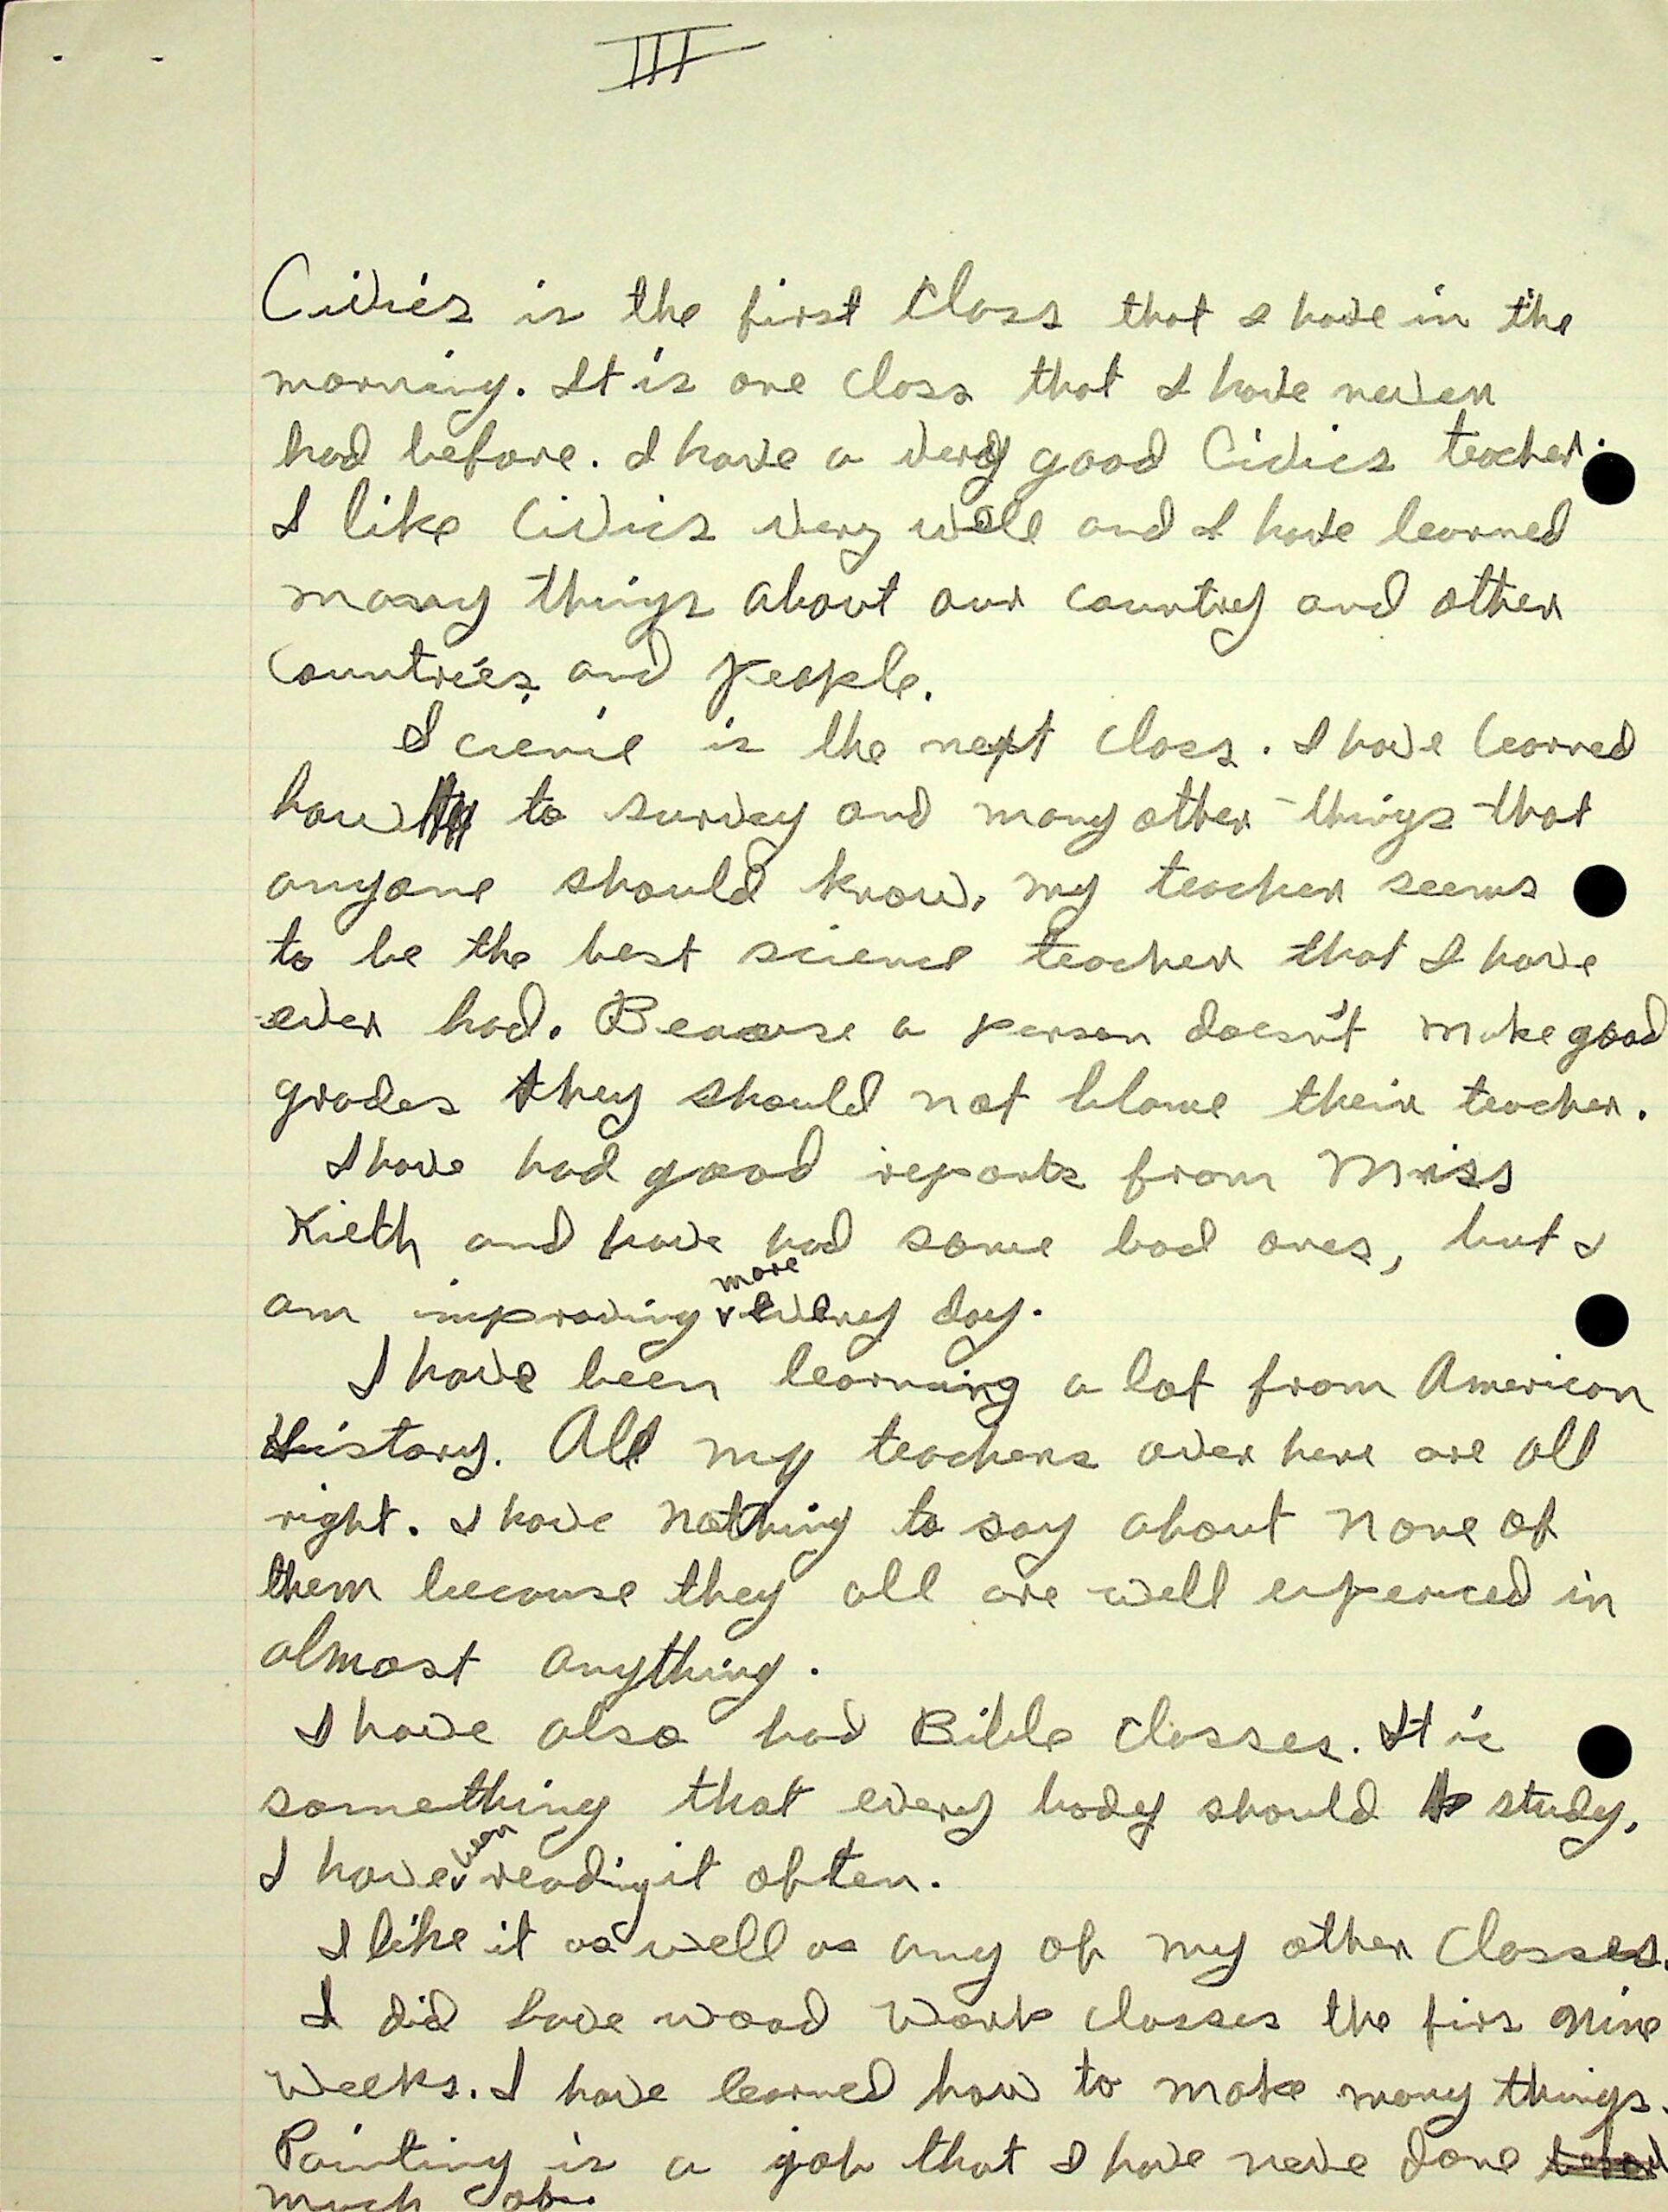 III
Civics is the first class that I have in the
morning. It is one class that I have never
had before. I have a very good Civics teacher.
I like Civics very well and I have learned
many things about our country and other
countries and people.
Science is the next class. I have learned
how to survey and many other things that
anyone should know. my teacher seems
to be the best science teacher that I have
ever had. Because a person doesn't make good
grades they should not blame their teacher.
I have had good reports from Miss
Kieth and have had some bad ones, but I
am improving more every day.
I have been learning a lot from American
History. All my teachers over here are all
right. I have nothing to say about none of
them because they all are well experced in
almost anything.
I have also had Bible classes. It is
something that every body should study.
I have been reading it often.
I like it as well as any of my other classes.
I did have wood work classes the firs nine
weeks. I have learned how to make many things.
Painting is a job that I have neve done
much of.